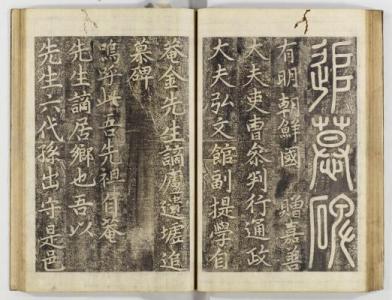 追慕碑
有明朝鮮國 贈嘉善
大夫吏曹參判行通政
大夫弘文館副提學自
菴金先生謫廬遺墟追
慕碑
嗚乎此吾先祖自菴
先生謫居鄉也吾以
先生六代孫出守是邑